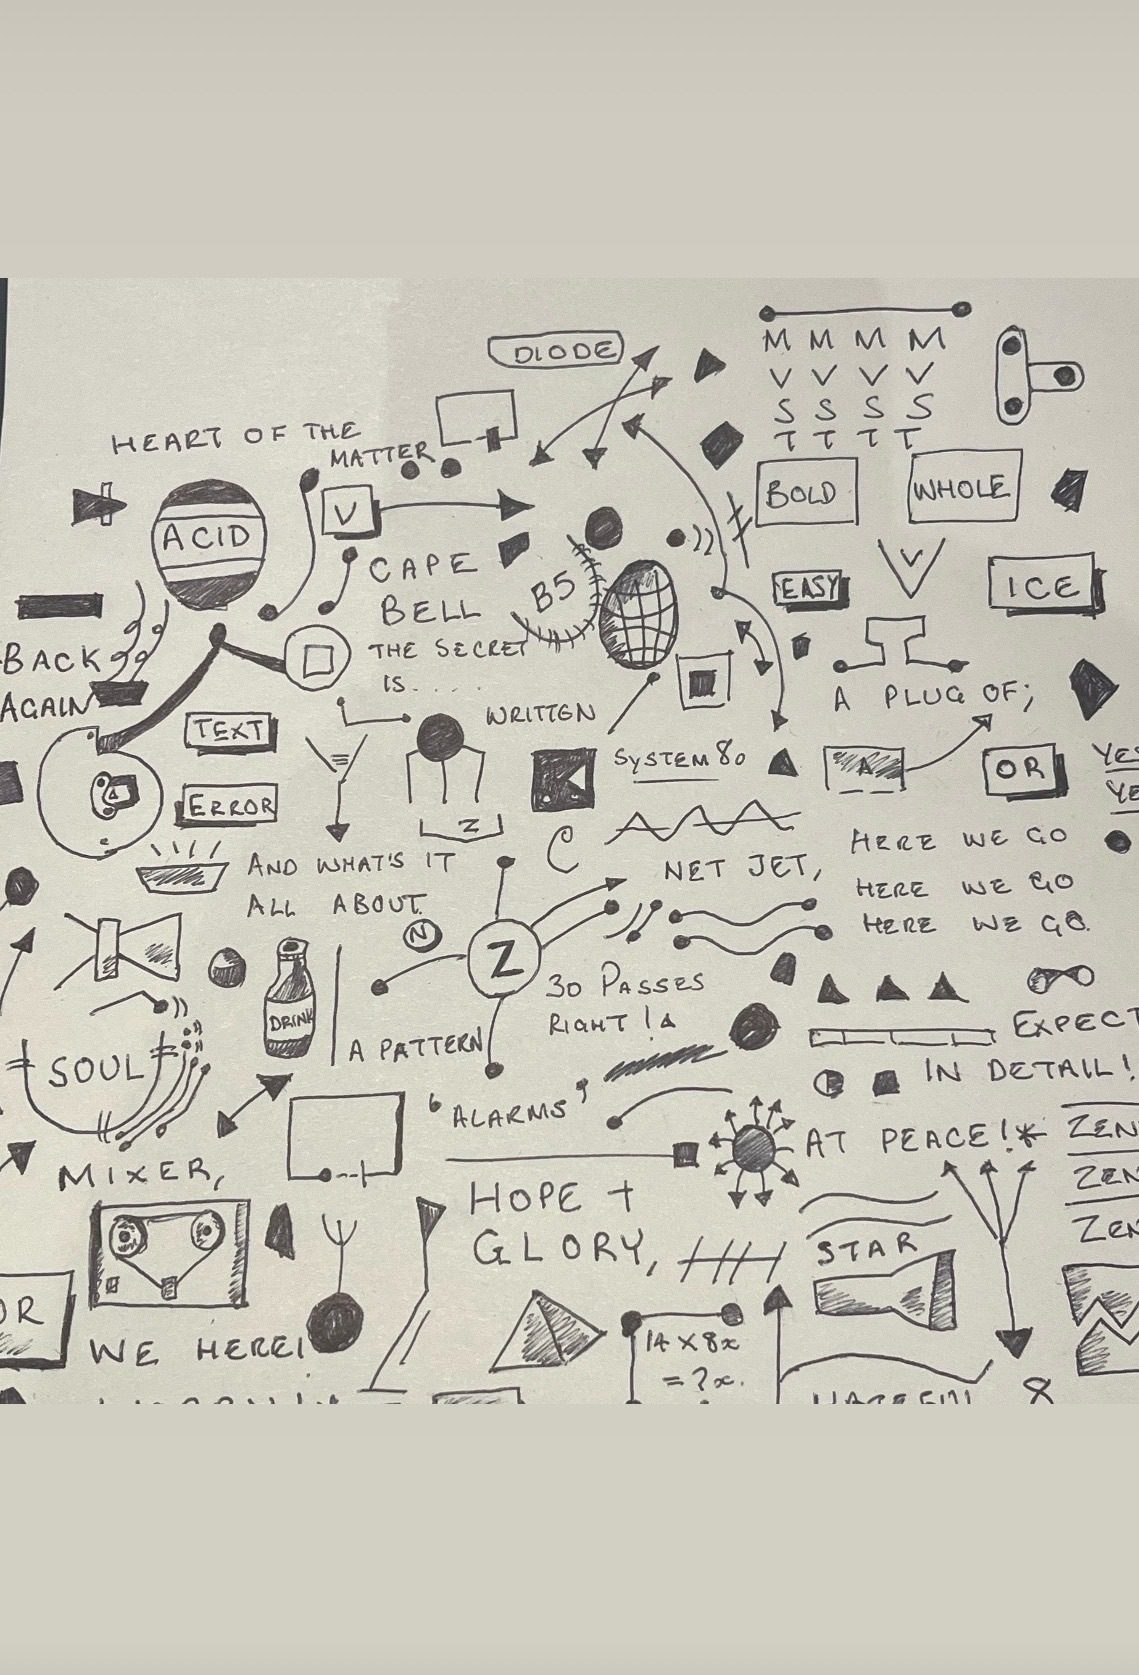 DIODE
M M M M
V V V V
S S S S
T T T T
HEART OF THE
MATTER
ACID
V
BOLD
WHOLE
CAPE
BELL
B5
EASY
V
ICE
THE SECRET
IS....
BACK
AGAIN
WRITTEN
A PLUG OF;
TEXT
SYSTEM 80
A
OR
YES
YE
ERROR
Z
C
HERE WE GO
HERE WE GO
HERE WE GO.
AND WHAT'S IT
ALL ABOUT.
NET JET,
N
Z
30 PASSES
RIGHT!
DRINK
A PATTERN
EXPECT
IN DETAIL!
SOUL
'ALARMS'
AT PEACE!*
ZEN
ZEN
ZEN
MIXER,
HOPE +
GLORY,
STAR
OR
WE HERE!
14 x 8x
= ?x.
8